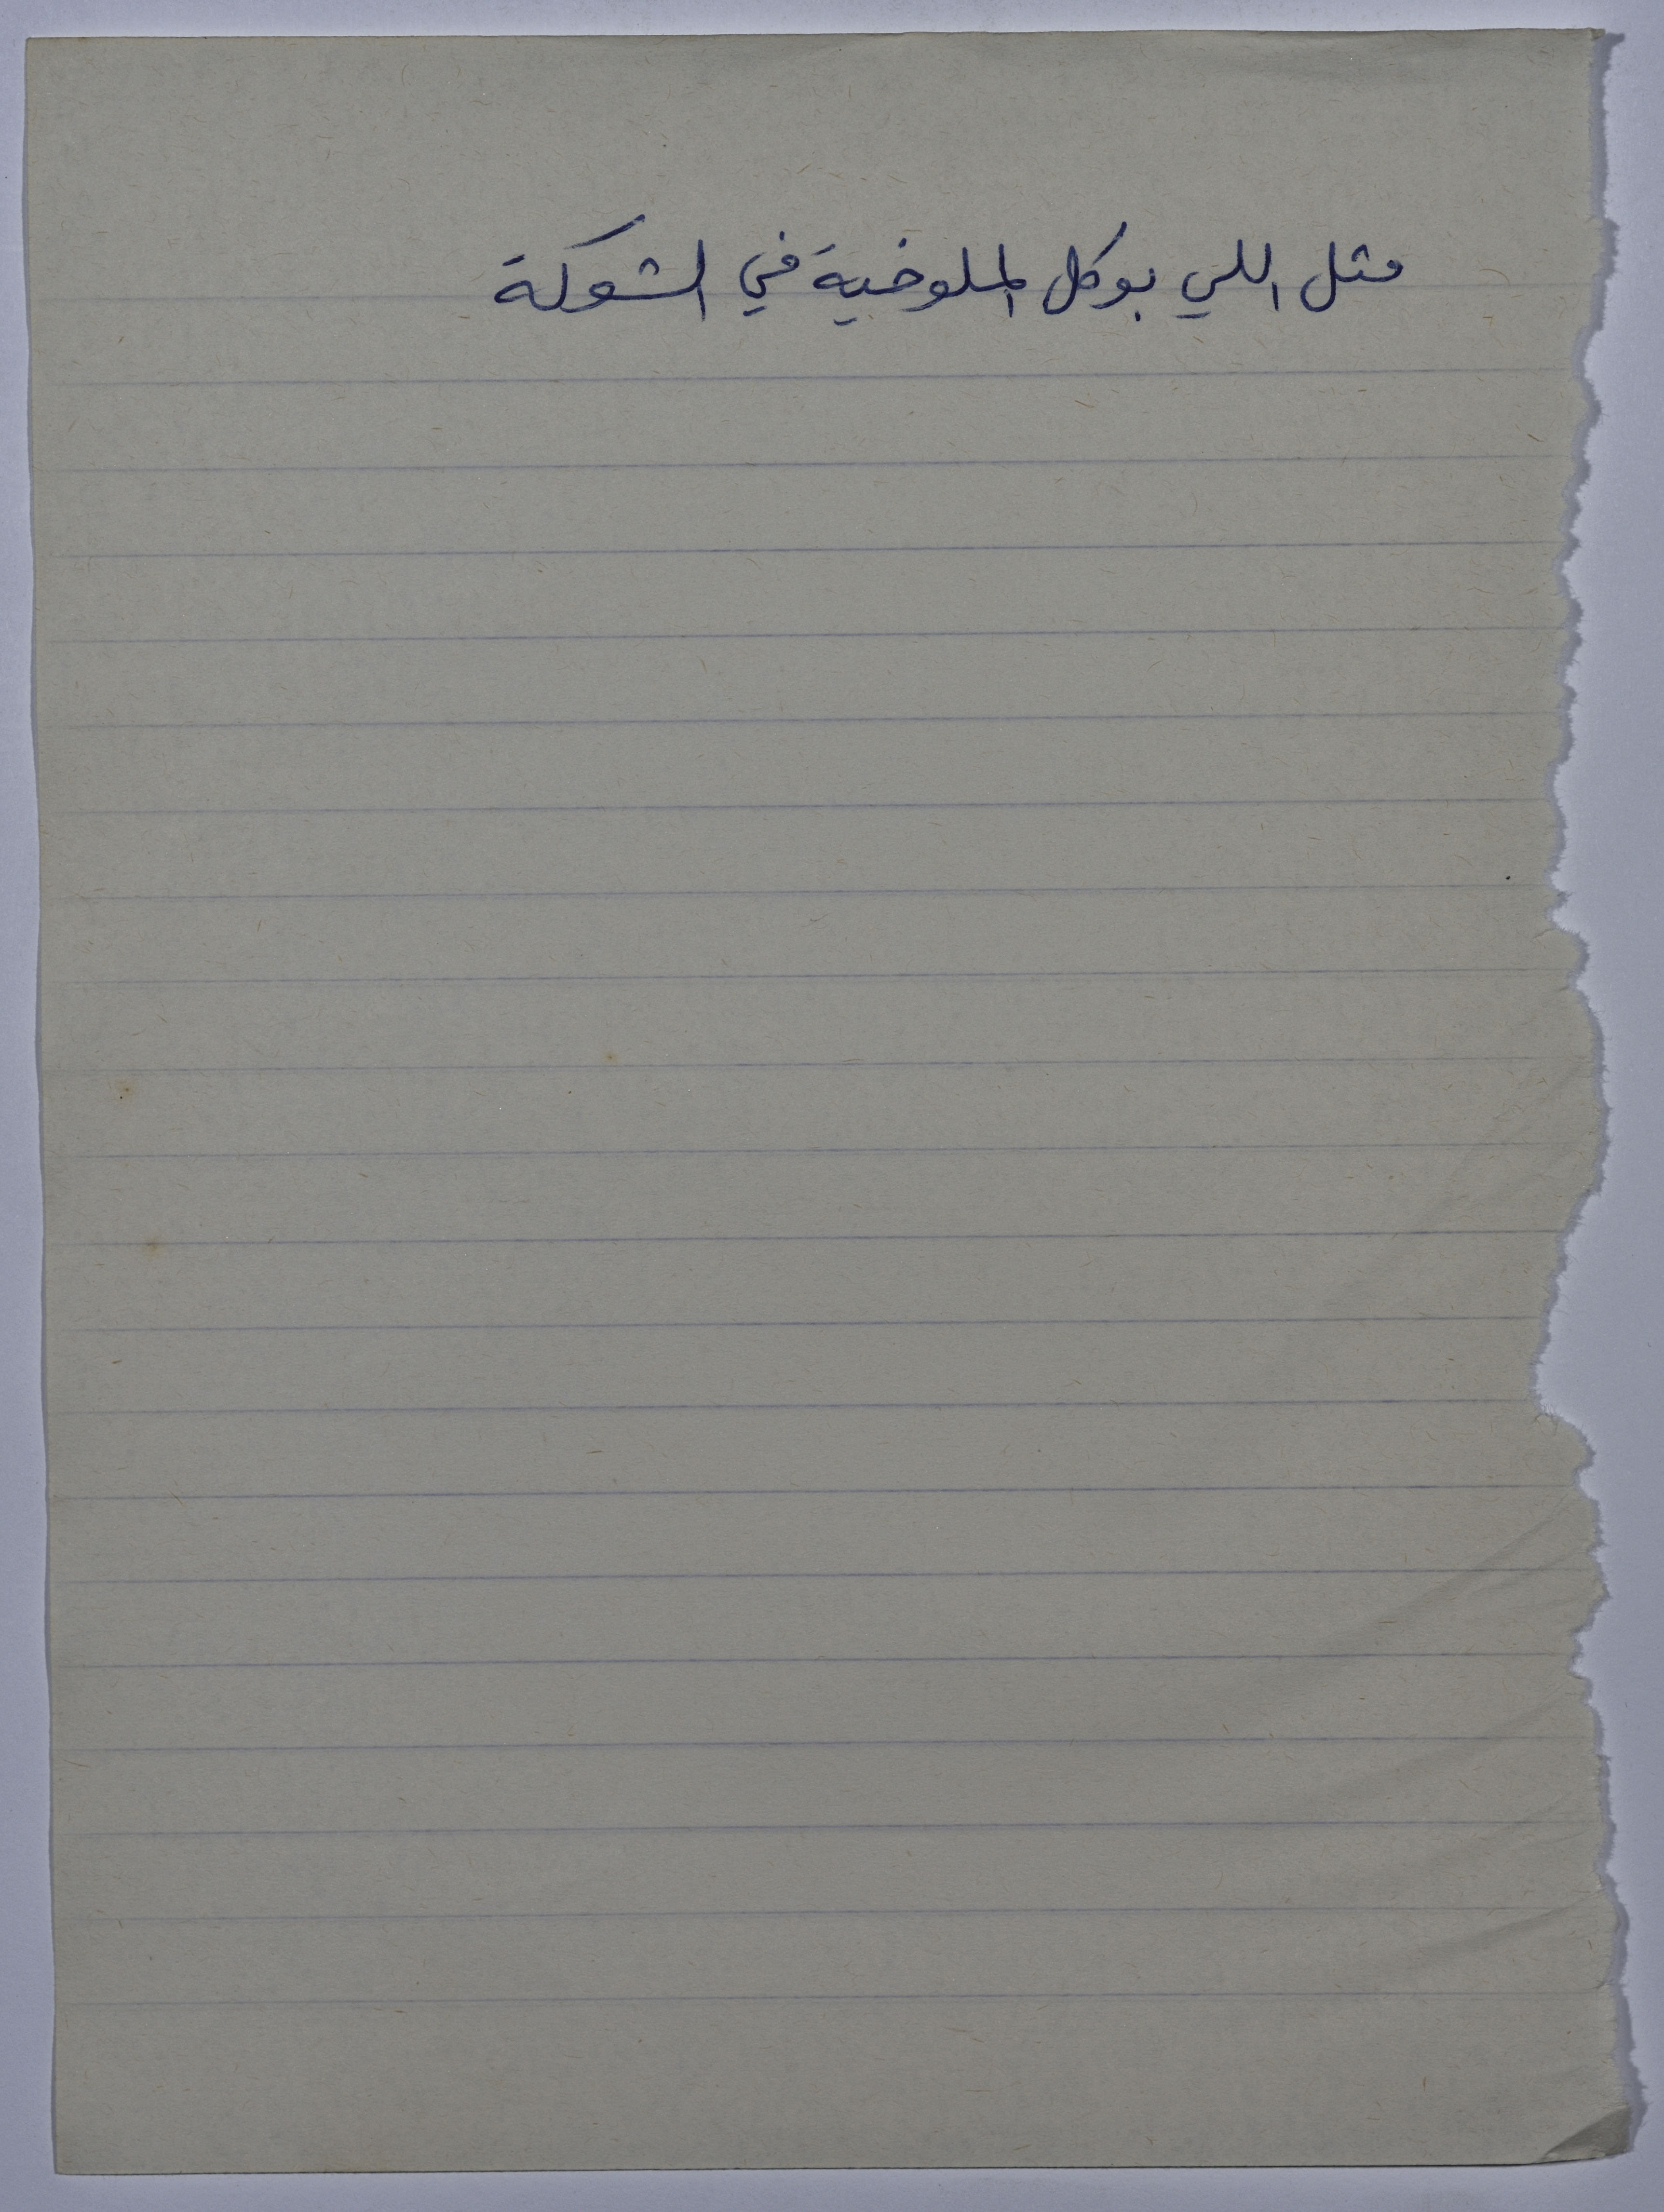 متل اللي بوكل الملوخية في الشوكة